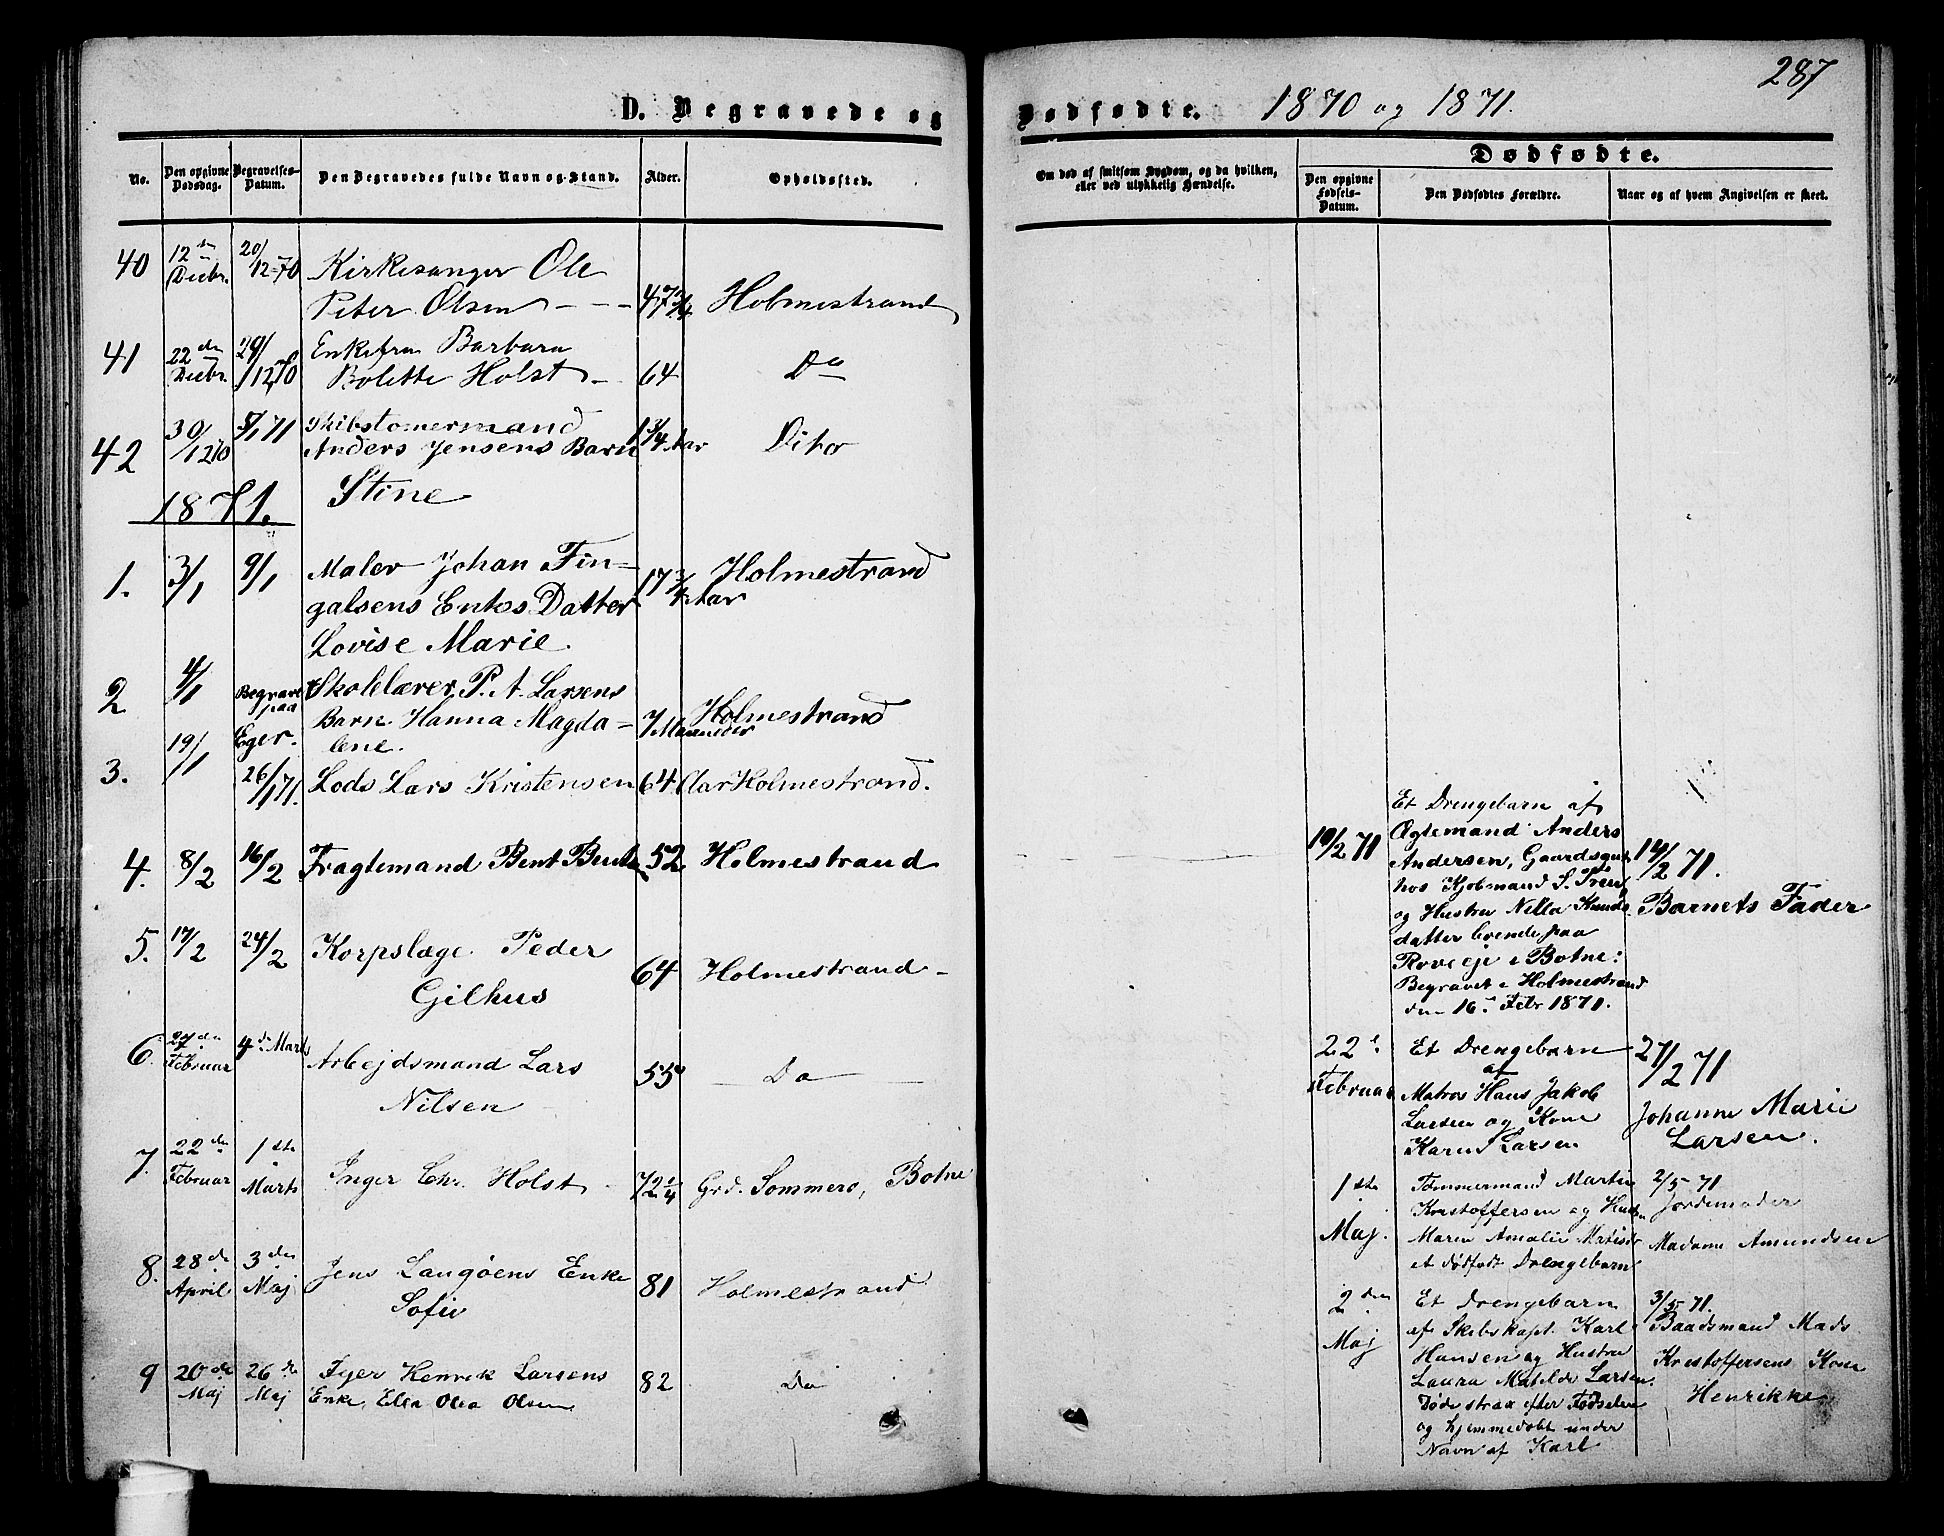 287
D. Begravede og Dødfødte. 1870 og 1871.
No.
Den opgivne Dødsdag.
Begravelses-Datum.
Den Begravedes fulde Navn og Stand.
Alder.
Opholdssted.
Om død af smitsom Sygdom, og da hvilken,
eller ved ulykkelig Hændelse.
Dødfødte.
Den opgivne Fødsels-Datum.
Den Dødfødtes Forældre.
Naar og af hvem Angivelsen er skeet.
40 12te Decbr. 20/12-70 Kirkesanger Ole
Peter Olsen 47 3/4 Holmestrand
41 22de Decbr. 29/12 70 Enkefru Barbara
Bolette Holst 64 Do
42 30/12 70 5/1 71 Skibstømermand
Anders Jensens Barn 1 3/4 Aar Dito
Stine
1871.
1. 3/1 9/1 Maler Johan Fin-
galsens Enkes Datter 17 3/4 Aar Holmestrand
Lovise Marie.
2 4/1 Begravet paa Eger. Skolelærer P. A. Larsens
Barn Hanna Magda- 7 Maaneder Holmestrand
lene.
3. 19/1 26/1 71. Lods Lars Kristensen 64 Aar Holmestrand.
4. 8/2 16/2 Fragtemand Bent 52 Holmestrand
5. 17/2 24/2 Korpslæge Peder
Gilhus 64 Holmestrand
6. 27de Februar 4de Marts Arbejdsmand Lars
Nilsen 55 Do
7. 22de Februar 1ste Marts Inger Chr. Holst 72 1/4 Grd. Sommerø, Botne
8. 28de April 3die Maj Jens Langøens Enke
Sofie 81 Holmestrand
9 20de Maj 26de Maj Henrik Larsens
Enke, Ellea Olea Olsen 82 Do
10/2 71
Et Drengebarn af
Ægtemand Anders
Andersen, Gaardsgut
hos Kjøbmand S.
og Hustru Nilla Knuds
datter boende paa
Roveeje i Botne:
Begravet i Holmestrand
den 16. Febr 1871.
14/2 71.
Barnets Fader
22de Februar
Et Drengebarn
af
Matros Hans Jakob
Larsen og Kone
Karen Larsen
27/2 71
Johanne Marie
Larsen.
1ste Maj.
Tømmermand Martin
Kristoffersen og Hustru
Maren Amalie
et dødfødt Drengebarn
2/5 71
Jordemoder
Madame Amundsen
2den Maj
Et Drengebarn
af Skibskapt. Karl
Hansen og Hustru
Laura Matilde Larsen.
Døde strax efter Fødselen
og hjemmedøbt under
Navn af Karl
3/5 71.
Baadsmand Mads
Kristoffersens Kone
Henrikke